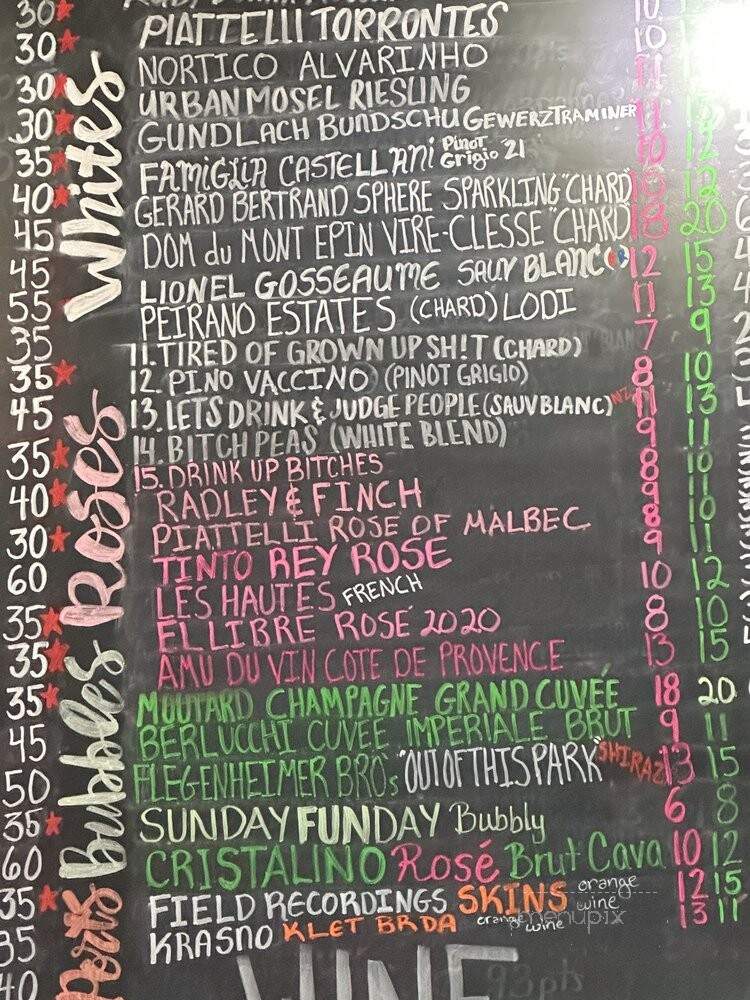 PIATTELLI TORRONTES 10
NORTICO ALVARINHO 11
URBAN MOSEL RIESLING
GUNDLACH BUNDSCHU GEWERZTRAMINER 11 15
FAMIGLIA CASTELLANI Pinot Grigio '21 10 12
GERARD BERTRAND SPHERE SPARKLING "CHARD" 10 12
DOM du MONT EPIN VIRE-CLESSE "CHARD" 18 20
LIONEL GOSSEAUME SAUV BLANC 12 15
PEIRANO ESTATES (CHARD) LODI 11 13
11. TIRED OF GROWN UP SH!T (CHARD) 7 9
12. PINO VACCINO (PINOT GRIGIO) 8 10
13. LETS DRINK & JUDGE PEOPLE (SAUV BLANC) NZ 11 13
14. BITCH PEAS (WHITE BLEND) 9 11
15. DRINK UP BITCHES 8 10
RADLEY & FINCH 9 11
PIATTELLI ROSE OF MALBEC 8 10
TINTO REY ROSE 9 11
LES HAUTES FRENCH 10 12
EL LIBRE ROSÉ 2020 8 10
AMU DU VIN COTE DE PROVENCE 13 15
MOUTARD CHAMPAGNE GRAND CUVÉE 18 20
BERLUCCHI CUVEE IMPERIALE BRUT 9 11
FLEGENHEIMER BROs "OUT OF THIS PARK" SHIRAZ 13 15
SUNDAY FUNDAY Bubbly 6 8
CRISTALINO Rosé Brut Cava 10 12
FIELD RECORDINGS SKINS orange wine 12 15
KRASNO KLET BRDA orange wine 13 11
WINE
93pts
Whites
Roses
Bubbles
Ports
30
30
30
30
35
40
45
45
55
35
35
45
35
40
30
60
35
35
35
45
50
35
60
35
35
40
menupix